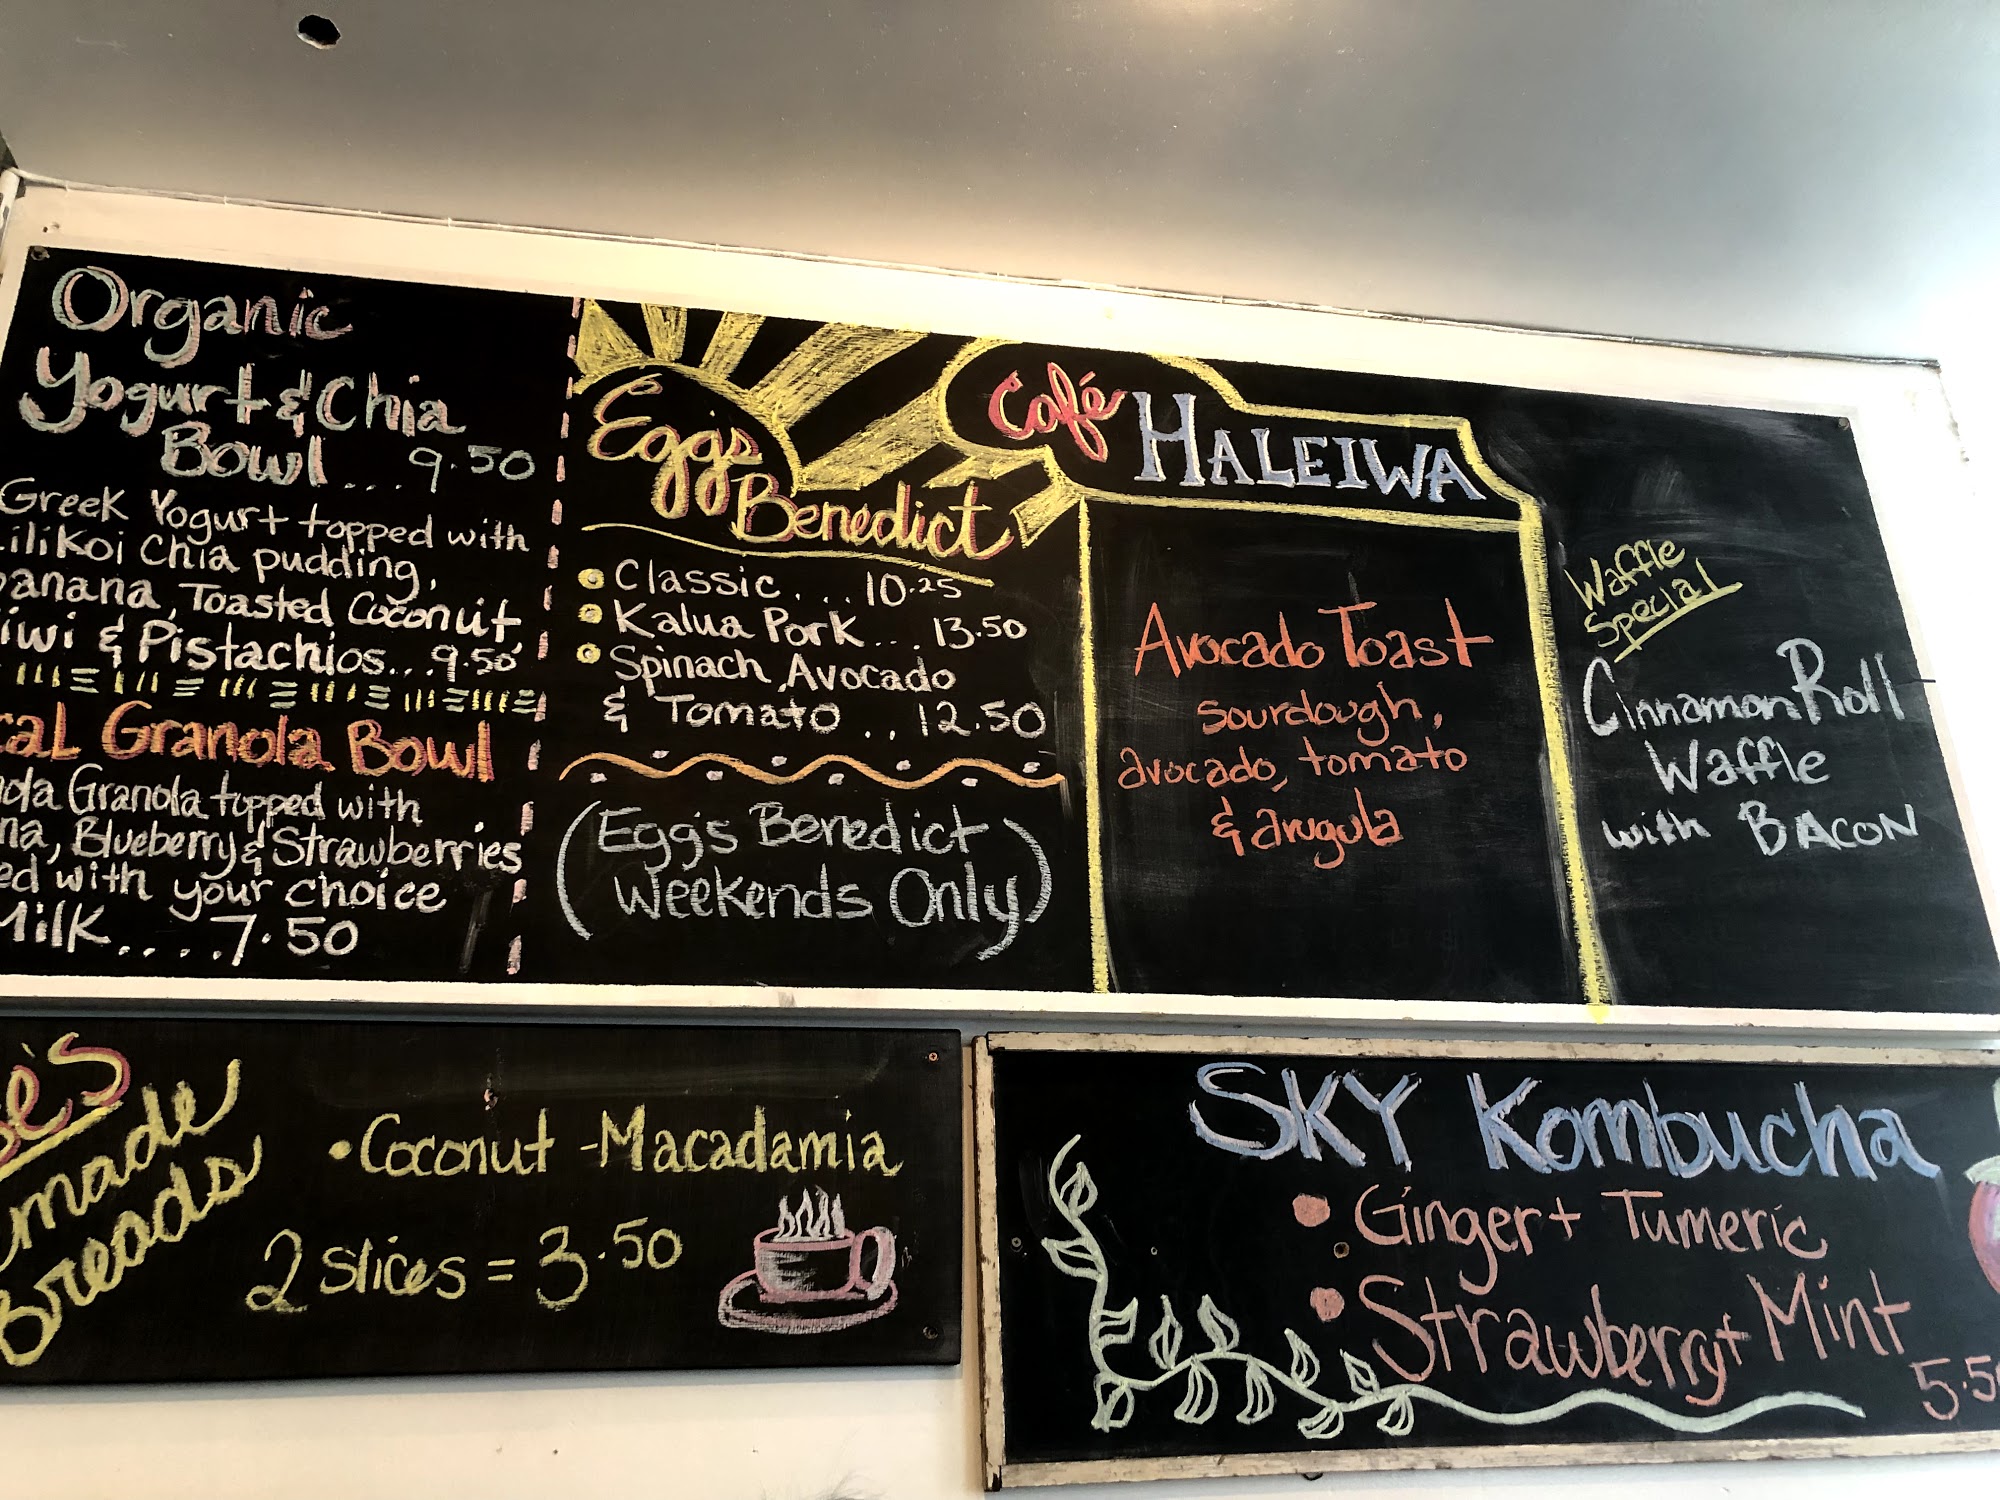 Organic
Yogurt & Chia
Bowl... 9.50
Greek Yogurt topped with
ilikoi Chia pudding,
anana, Toasted Coconut,
iwi & Pistachios...9.50
cal Granola Bowl
ola Granola topped with
na, Blueberry & Strawberries
ed with your choice
Milk.....7.50
Eggs
Benedict
Classic....10.25
Kalua Pork... 13.50
Spinach, Avocado
& Tomato .. 12.50
(Eggs Benedict
Weekends Only)
Café HALEIWA
Avocado Toast
sourdough,
avocado, tomato
& arugula
Waffle
Special
Cinnamon Roll
Waffle
with BACON
e's
made
Breads
• Coconut - Macadamia
2 slices = 3.50
SKY Kombucha
• Ginger + Tumeric
• Strawberry + Mint
5.5